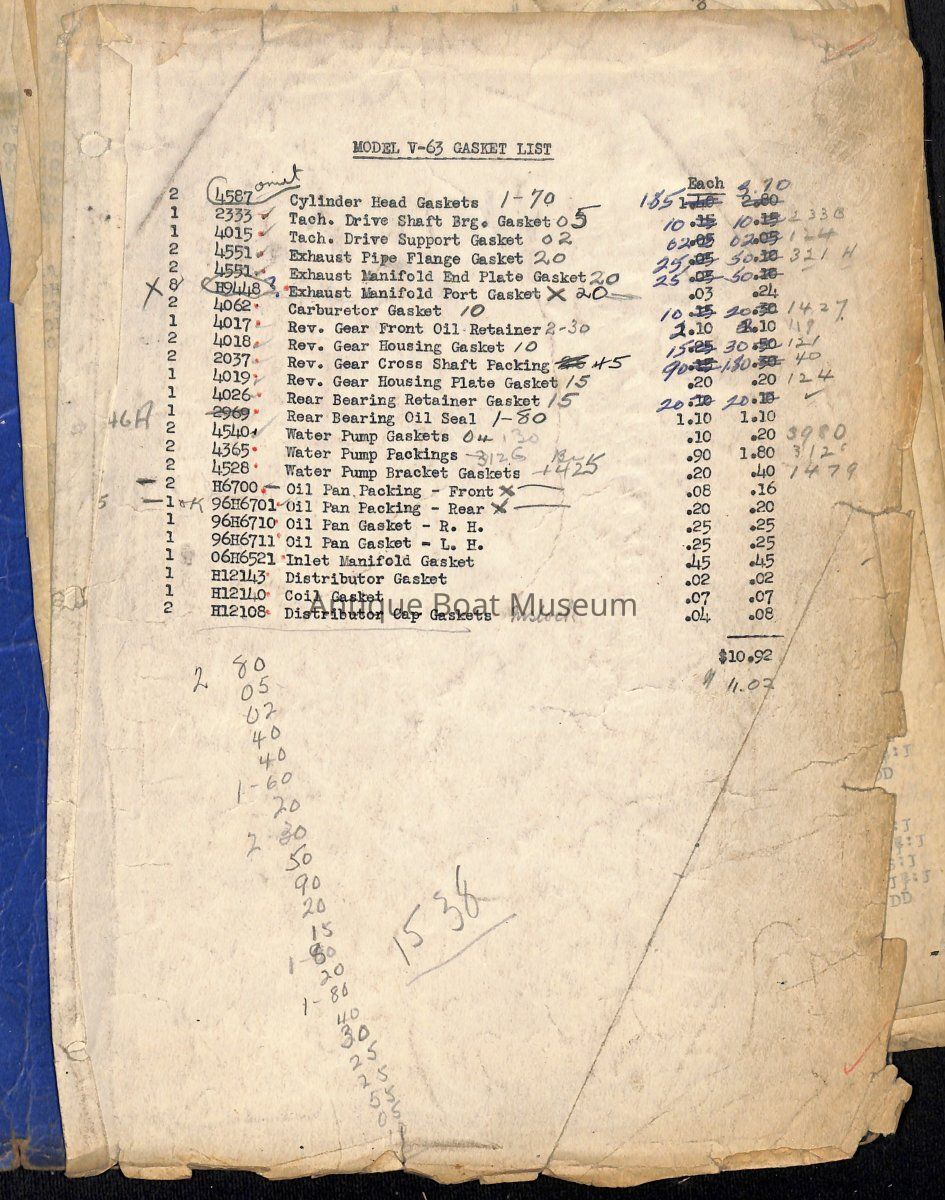 MODEL V-63 GASKET LIST
Each 3.70
2 4587 omit Cylinder Head Gaskets 1-70 185 1.40 2.80
1 2333 Tach. Drive Shaft Brg. Gasket 05 10 .15 10 .15 233B
1 4015 Tach. Drive Support Gasket 02 02 .05 02 .05 124
2 4551 Exhaust Pipe Flange Gasket 20 25 .05 50 .10 321 H
2 4551 Exhaust Manifold End Plate Gasket 20 25 .05 50 .10
X 8 H9448 ? Exhaust Manifold Port Gasket X 20 .03 .24
2 4062 Carburetor Gasket 10 10 .15 20 .30 1427
1 4017 Rev. Gear Front Oil Retainer 2-30 .10 .10 119
2 4018 Rev. Gear Housing Gasket 10 15 .25 30 .50 121
2 2037 Rev. Gear Cross Shaft Packing 45 90 .15 1.80 .30 40
1 4019 Rev. Gear Housing Plate Gasket 15 .20 .20 124
1 4026 Rear Bearing Retainer Gasket 15 20 .10 20 .10
46A 1 2969 Rear Bearing Oil Seal 1-80 1.10 1.10
2 4540 Water Pump Gaskets 04 130 .10 .20 3980
2 4365 Water Pump Packings 3126 .90 1.80 312
2 4528 Water Pump Bracket Gaskets 1425 .20 .40 1479
2 H6700 Oil Pan Packing - Front X .08 .16
5 1 OK 96H6701 Oil Pan Packing - Rear X .20 .20
1 96H6710 Oil Pan Gasket - R. H. .25 .25
1 96H6711 Oil Pan Gasket - L. H. .25 .25
1 06H6521 Inlet Manifold Gasket .45 .45
1 H12143 Distributor Gasket .02 .02
1 H12140 Coil Gasket .07 .07
Antique Boat Museum
2 H12108 Distributor Cap Gaskets .04 .08
$10.92
11.02
2 80
05
02
40
40
1-60
20
2 30
50
90
20
15
1-80
20
1-80
40
30
25
5
25
5
0
15 38